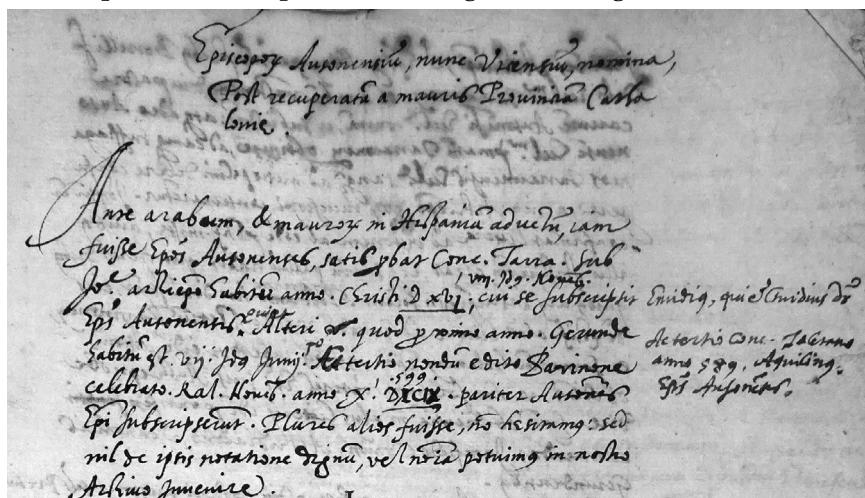 Episcoporꝝ Ausonensiũ, nunc Vicensiũ, nomina,
Post recuperatã a mauris Provinciã Catha
lonie.
Ante arabum, & mauroꝝ in Hispaniã adventũ, iam
fuisse Epõs Ausonenses, satis ꝓbat Conc. Tarra. sub
Joẽ archiepõ habitũ anno. Christi D XVI, cui se subscripsit
viij. Idq. Novẽb.
Epũs Ausonensis. Alteri quod ꝓximo anno. Gerunde
habitũ est. vij. Idq Junij. Ac tertio nondũ edito Barcinone
celebrato. Kal. Novẽb. anno X. DXCIX. pariter Ausonẽses
599
Epi subscripserũt. Plures alios fuisse, nõ hesitamq: sed
nil de iptis notatione dignũ, vel noĩa potuimq in nostro
Archivo Invenire.
Ac tertio Conc. Toletano
anno 589. Aquilinq.
Epũs Ausonẽsis.